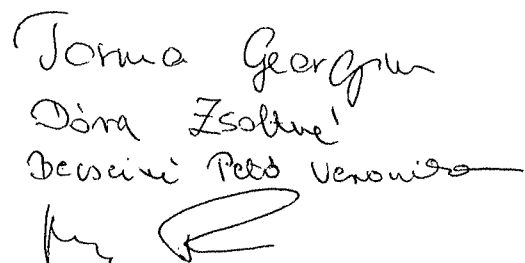 Torma Georgina
Dóra Zsoltné
Decseiné Pető Veronika